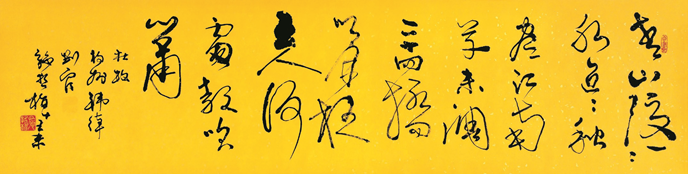 青山隱〻
水迢〻秋
盡江南
草未凋
二十四橋
明月夜
玉人何
處教吹
簫
杜牧
揚州韓綽
判官